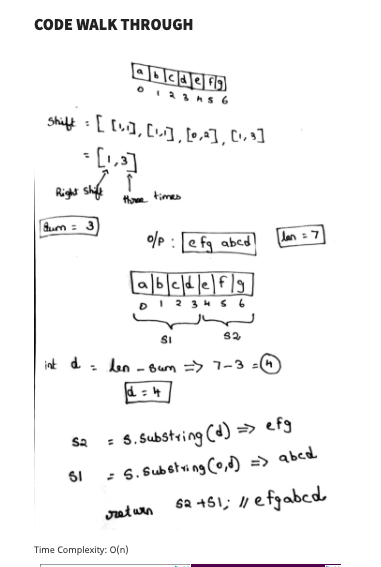 CODE WALK THROUGH
a b c d e f g
0 1 2 3 4 5 6
Shift = [ [1,1], [1,1], [0,2], [1,3]
= [1,3]
Right Shift three times
Sum = 3
O/P : efg abcd len = 7
a b c d e f g
0 1 2 3 4 5 6
S1 S2
int d = len - sum => 7-3 = 4
d = 4
S2 = S.substring(d) => efg
S1 = S.substring(0,d) => abcd
return S2 + S1; // efgabcd
Time Complexity: O(n)